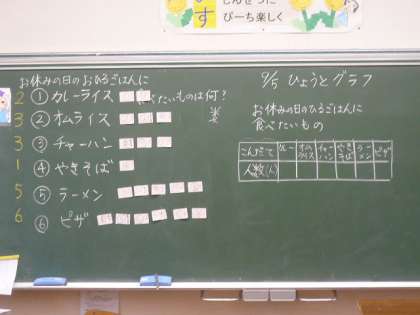 しんせつに
す
ぴーち楽しく
お休みの日のおひるごはんに
食べたいものは何？
2 ① カレーライス
3 ② オムライス
3 ③ チャーハン
1 ④ やきそば
5 ⑤ ラーメン
6 ⑥ ピザ
9/5 ひょうとグラフ
お休みの日のひるごはんに
食べたいもの
こんだて カレー オムライス チャーハン やきそば ラーメン ピザ
人数(人)